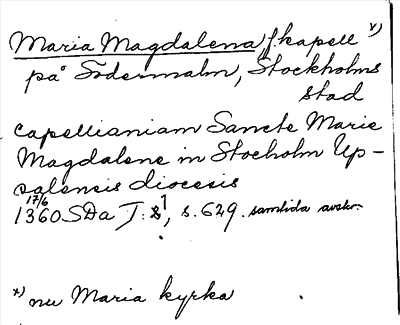 Maria Magdalena, f. kapell x)
på Södermalm, Stockholms
stad
capellianiam Sancte Marie
Magdalene in Stocholm Up-
salensis diocesis
17/6
1360 SDa T: 1, s. 629. samtida avskr.
x) nu Maria kyrka